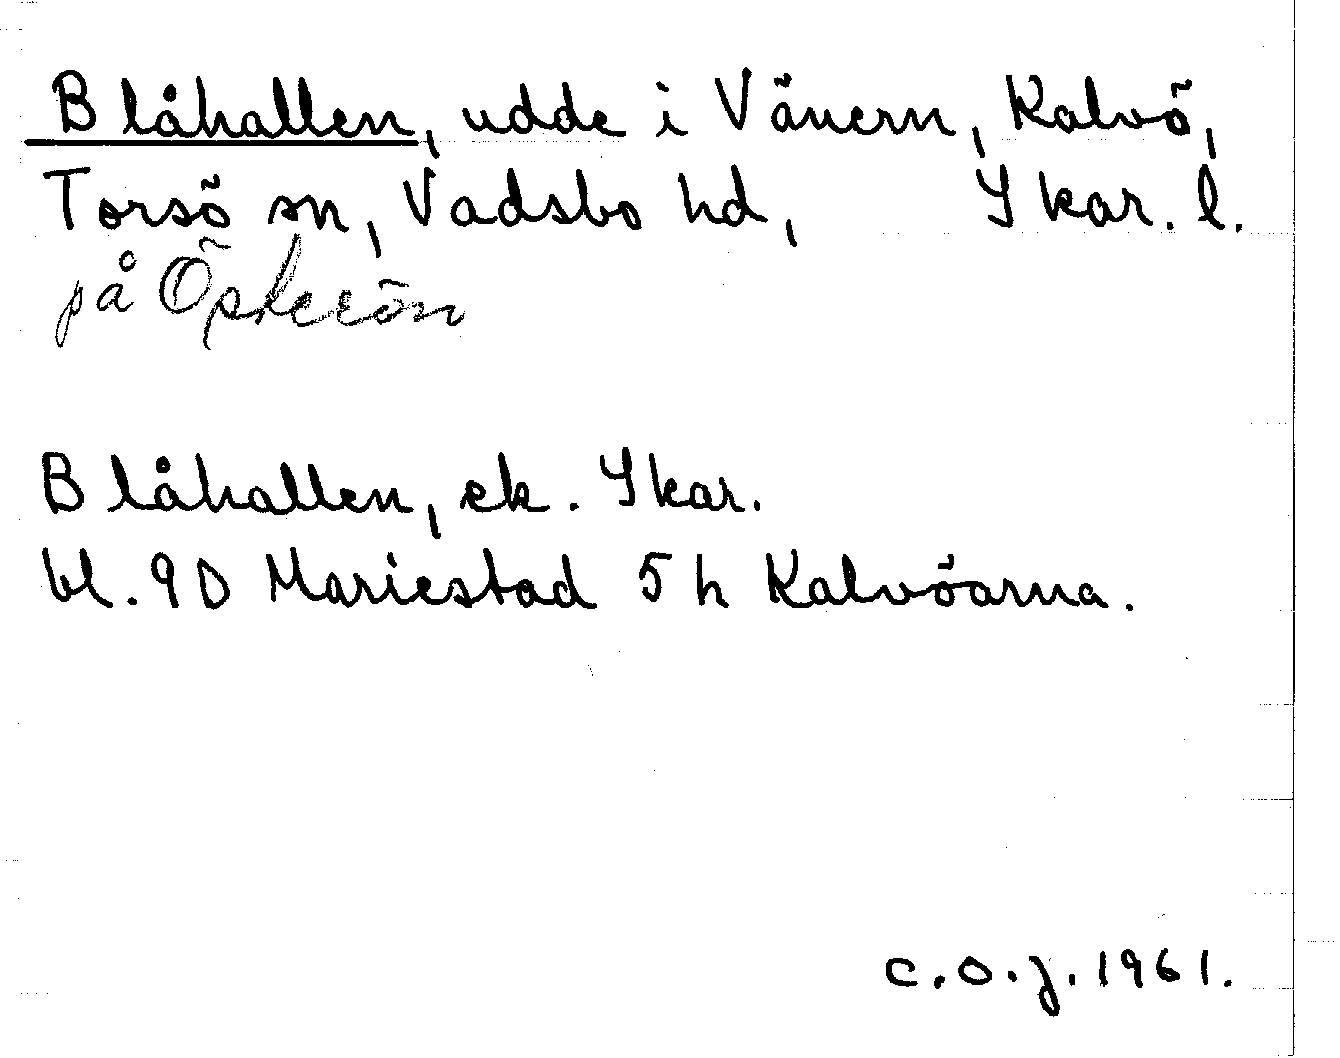 Blåhallen, udde i Vänern, Kalvö,
Torsö sn, Vadsbo hd, Skar. l.
på Öpkerön
Blåhallen, ek. Skar.
bl. 9D Mariestad 5 h Kalvöarna.
C.O.J. 1961.